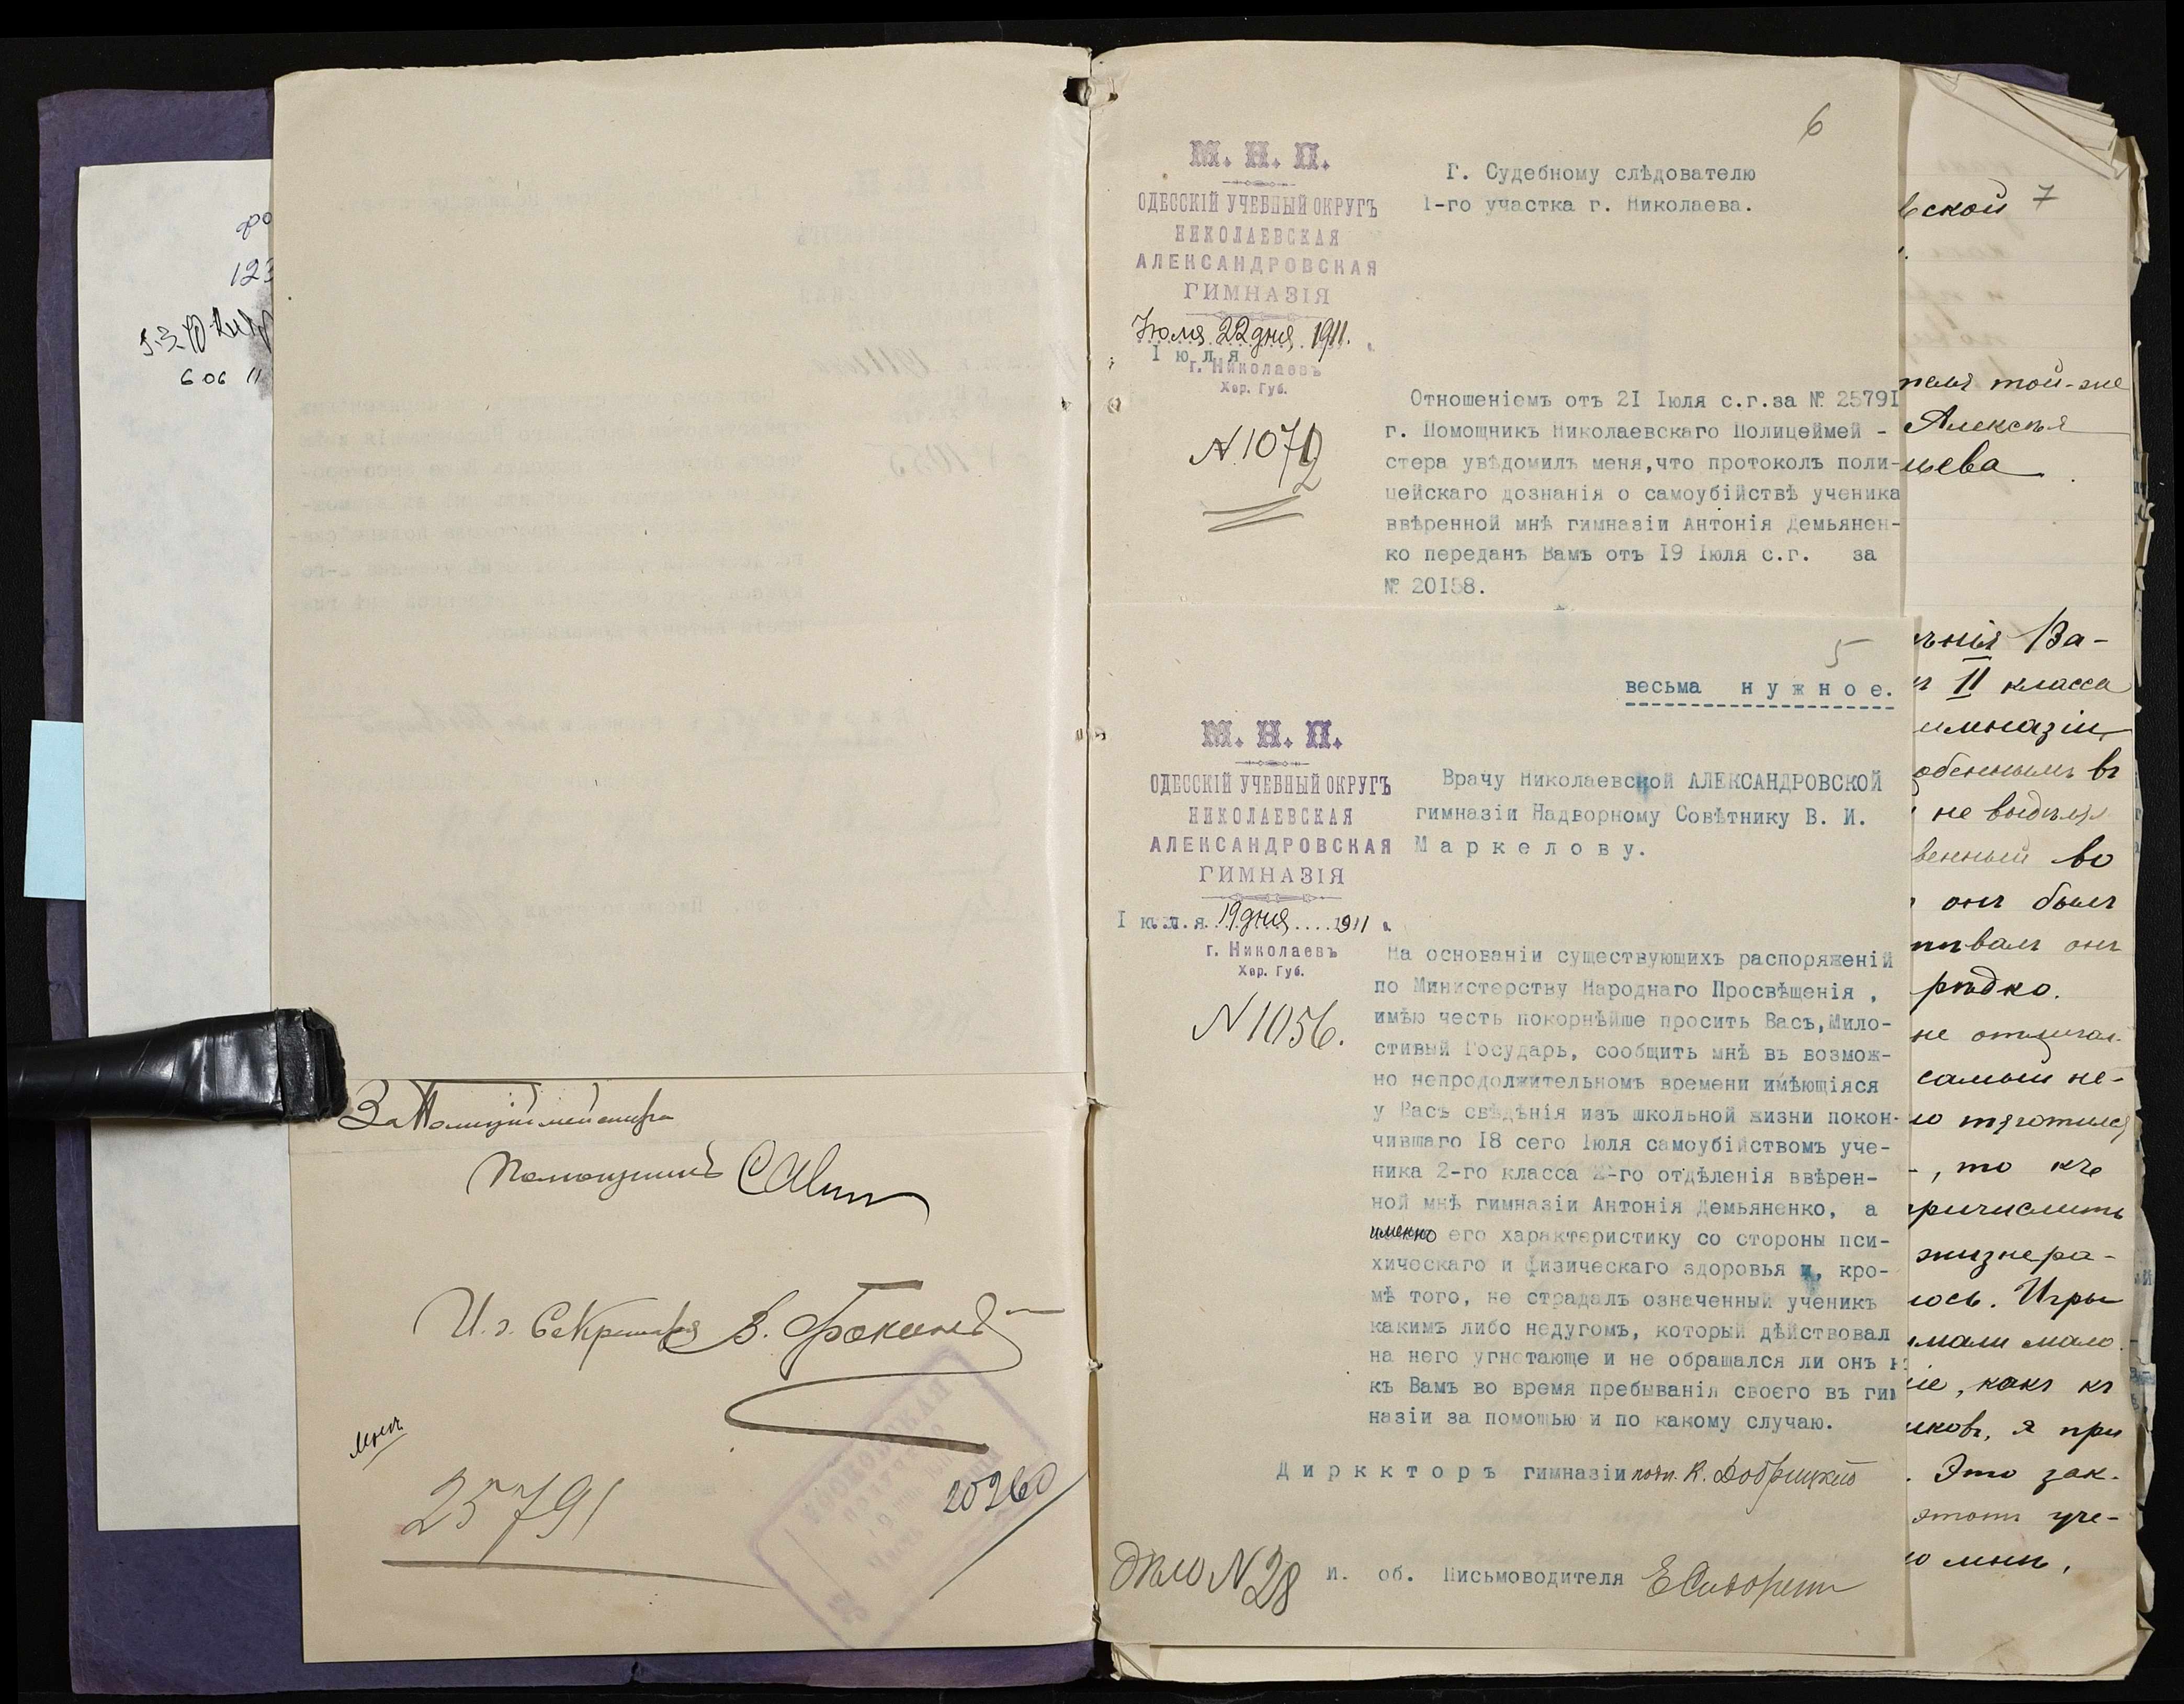 123
6 06 11
За Полицiймейстера
Помощникъ
И. д. Секретаря В. Фокинъ
25791
20260
6
М. Н. П.
ОДЕССКІЙ УЧЕБНЫЙ ОКРУГЪ
НИКОЛАЕВСКАЯ
АЛЕКСАНДРОВСКАЯ
ГИМНАЗІЯ
Іюля 22 дня 1911.
І ю л я
г. Николаевъ
Хер. Губ.
N 1072
Г. Судебному слѣдователю
1-го участка г. Николаева.
Отношеніемъ отъ 2I Iюля с.г.за № 2579I
г. Помощникъ Николаевскаго Полицеймей -
стера увѣдомилъ меня,что протоколъ поли-
цейскаго дознанія о самоубійствѣ ученика
ввѣренной мнѣ гимназіи Антонія Демьянен-
ко переданъ Вамъ отъ I9 Iюля с.г. за
№ 20I58.
5
весьма н у ж н о е.
М. Н. П.
ОДЕССКІЙ УЧЕБНЫЙ ОКРУГЪ
НИКОЛАЕВСКАЯ
АЛЕКСАНДРОВСКАЯ
ГИМНАЗІЯ
І ю.л.я. 19 дня....1911 г.
г. Николаевъ
Хер. Губ.
N 1056.
Врачу Николаевской АЛЕКСАНДРОВСКОЙ
гимназіи Надворному Совѣтнику В. И.
М а р к е л о в у.
На основаніи существующихъ распоряженій
по Министерству Народнаго Просвѣщенія ,
имѣю честь покорнѣйше просить Васъ,Мило-
стивый Государь, сообщить мнѣ въ возмож-
но непродолжительномъ времени имѣющіяся
у Васъ свѣдѣнія изъ школьной жизни покон-
чившаго I8 сего Iюля самоубійствомъ уче-
ника 2-го класса 2-го отдѣленія ввѣрен-
ной мнѣ гимназіи Антонія Демьяненко, а
именно его характеристику со стороны пси-
хическаго и физическаго здоровья и, кро-
мѣ того, не страдалъ означенный ученикъ
какимъ либо недугомъ, который дѣйствовал
на него угнетающе и не обращался ли онъ
къ Вамъ во время пребыванія своего въ гим
назіи за помощью и по какому случаю.
Д и р к к т о р ъ гимназіи подп. К. Добрицкій
Дѣло N 28
и. об. Письмоводителя
вской 7
теля той-же
Алексѣя
цева
ѣнія Ва-
II класса
имназіи,
обеннымъ въ
не выдѣля
венный во
онъ былъ
пѣвалъ онъ
рѣдко.
не отличал
самый не-
ло тяготился
, то къ
причислить
жизнера-
лось. Игры
мали мало.
іе, какъ къ
иковъ, я при
Это зак-
этотъ уче-
ю мнѣ,